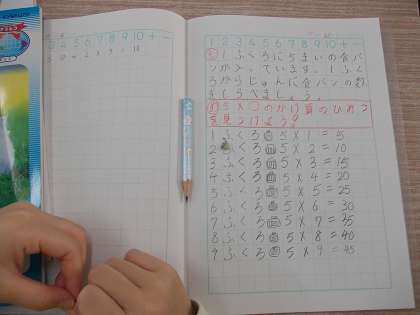 1 2 3 4 5 6 7 8 9 10 + -
1ふくろに5まいの食パ
ンが入っています。1ふく
ろからじゅんに食パンの数
をしらべましょう。
5×□のかけ算のひみつ
を見つけよう?
1ふくろ 5×1=5
2ふくろ 5×2=10
3ふくろ 5×3=15
4ふくろ 5×4=20
5ふくろ 5×5=25
6ふくろ 5×6=30
7ふくろ 5×7=35
8ふくろ 5×8=40
9ふくろ 5×9=45